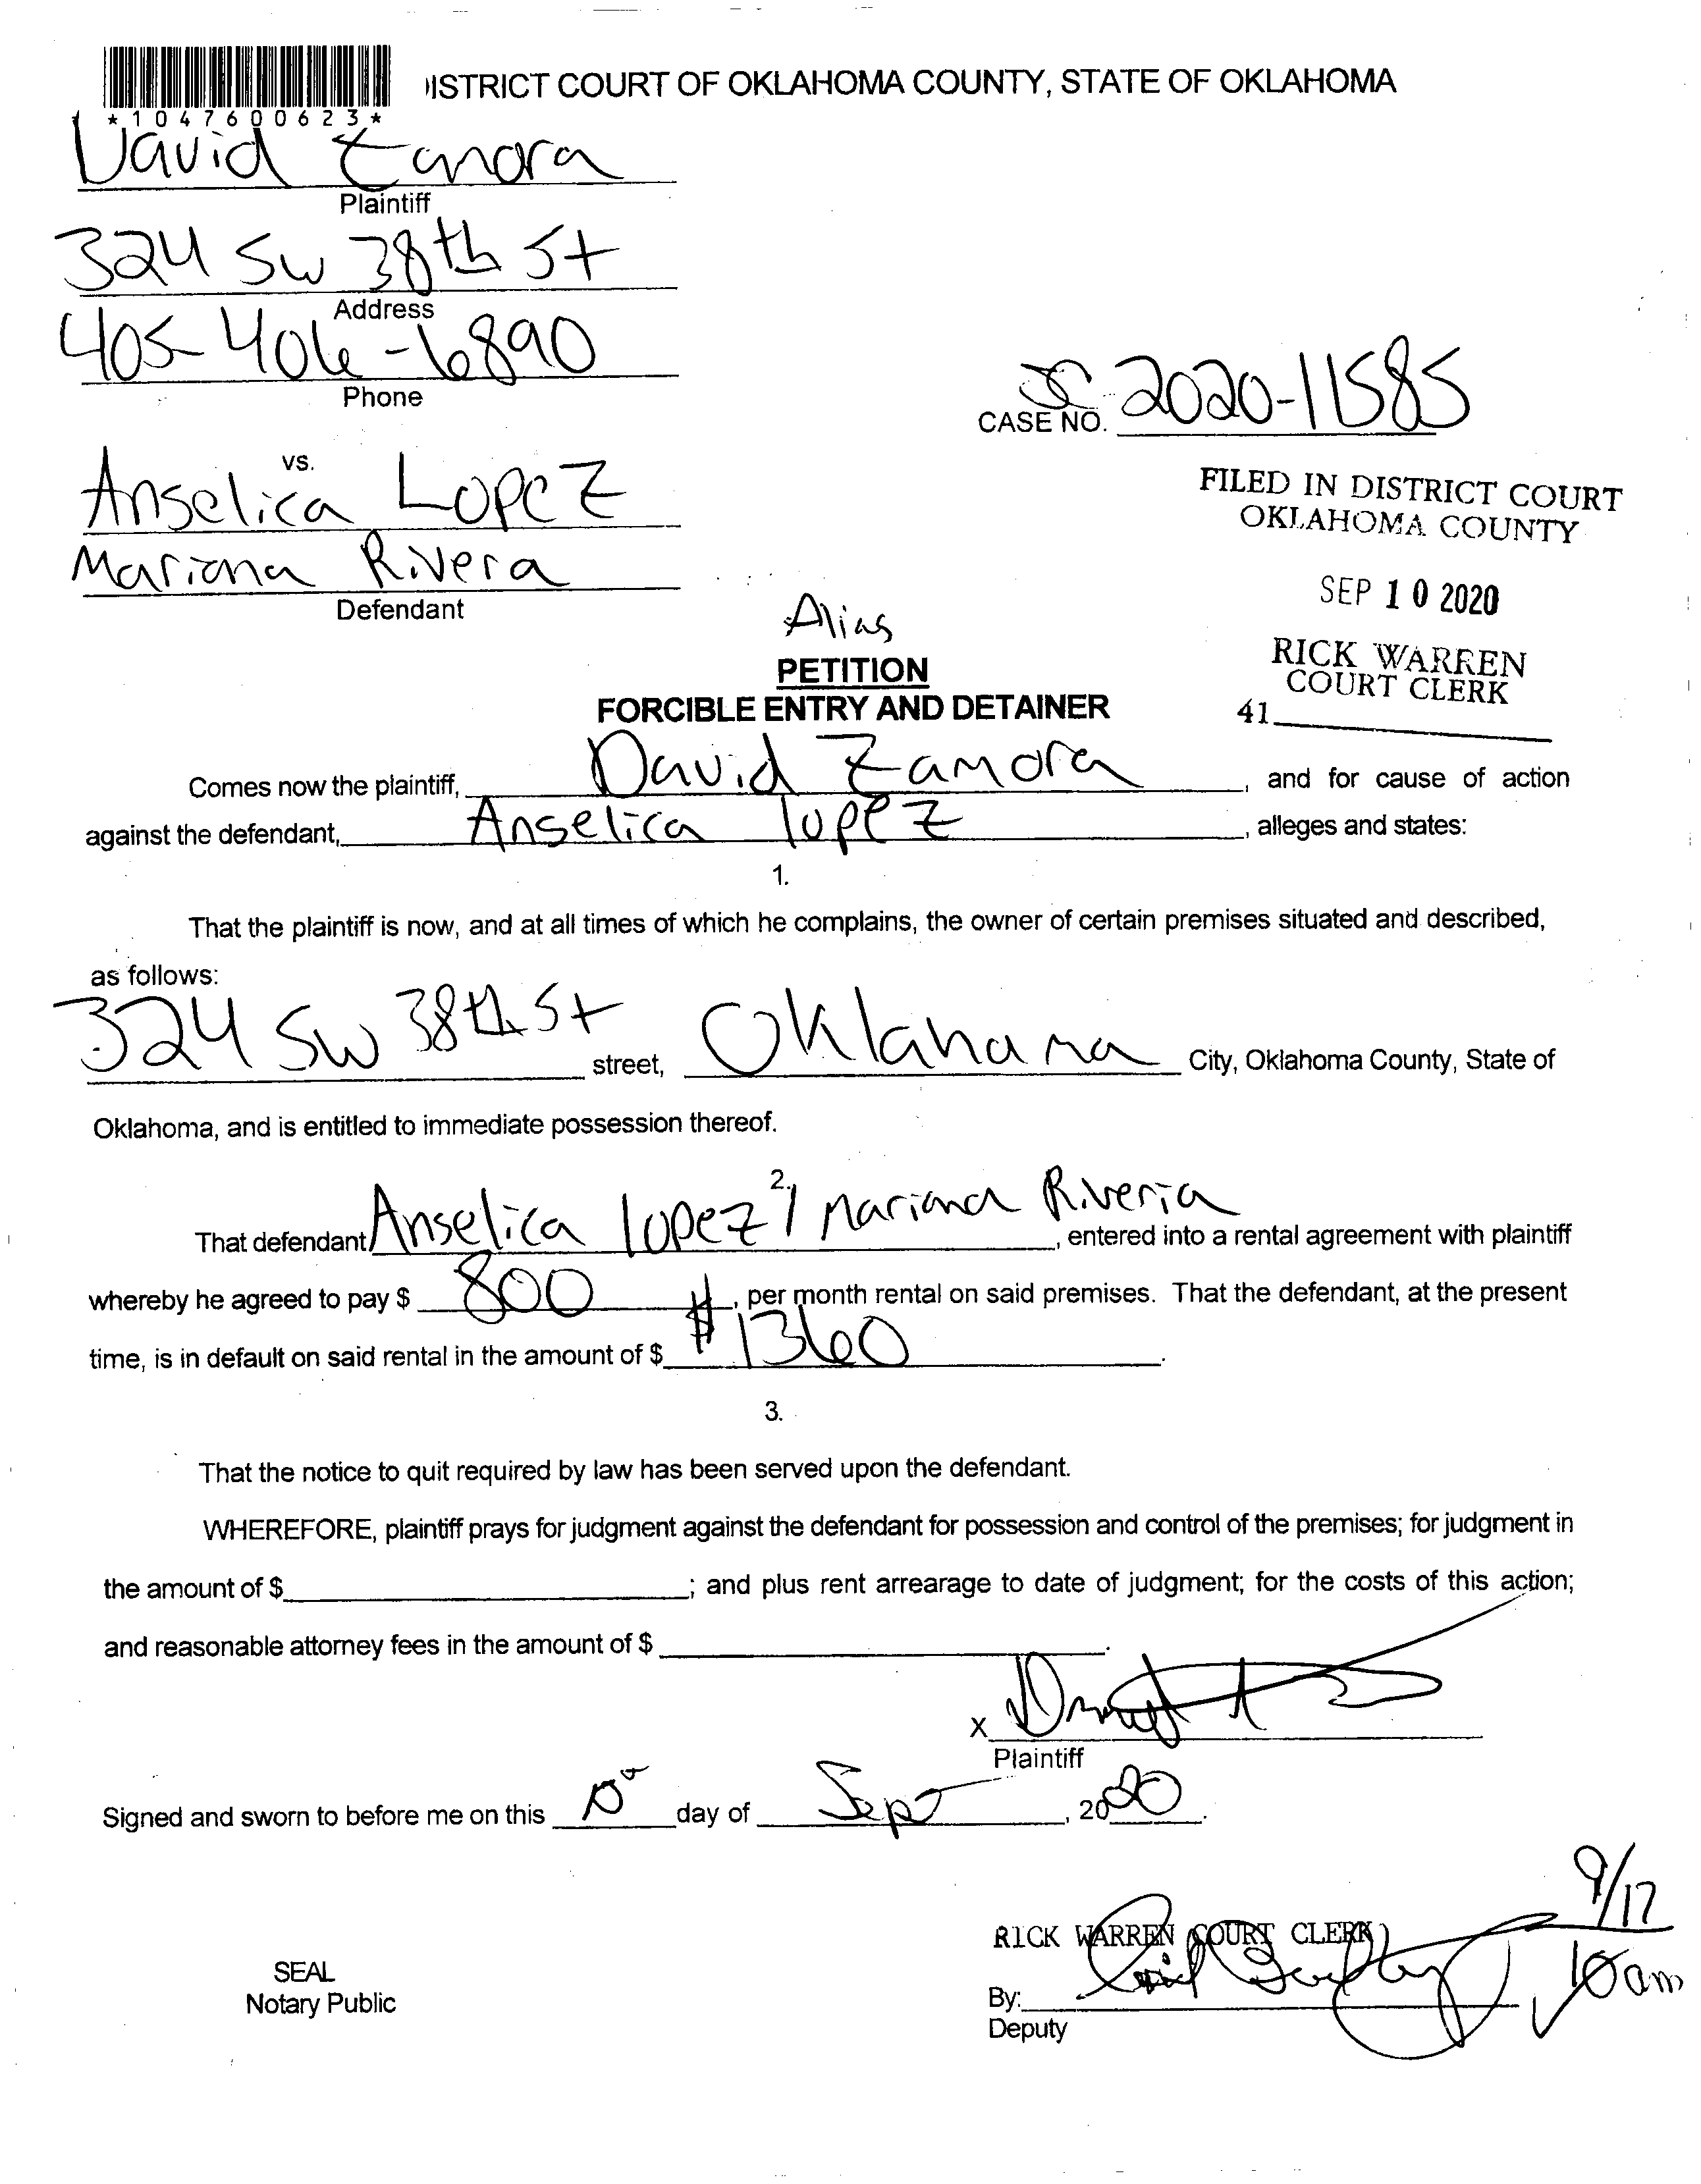 ISTRICT COURT OF OKLAHOMA COUNTY, STATE OF OKLAHOMA
*1047600623*
David Zamora
Plaintiff
324 SW 38th St
Address
405-406-6890
Phone
CASE NO. SC 2020-11585
vs.
Anselica Lopez
Mariana Rivera
Defendant
FILED IN DISTRICT COURT
OKLAHOMA COUNTY
SEP 10 2020
RICK WARREN
COURT CLERK
41
Alias
PETITION
FORCIBLE ENTRY AND DETAINER
Comes now the plaintiff, David Zamora, and for cause of action
against the defendant, Anselica lopez, alleges and states:
1.
That the plaintiff is now, and at all times of which he complains, the owner of certain premises situated and described,
as follows:
324 SW 38th St street, Oklahoma City, Oklahoma County, State of
Oklahoma, and is entitled to immediate possession thereof.
2.
That defendant Anselica lopez / Mariana Riveria, entered into a rental agreement with plaintiff
whereby he agreed to pay $ 800, per month rental on said premises. That the defendant, at the present
time, is in default on said rental in the amount of $ $1360.
3.
That the notice to quit required by law has been served upon the defendant.
WHEREFORE, plaintiff prays for judgment against the defendant for possession and control of the premises; for judgment in
the amount of $; and plus rent arrearage to date of judgment; for the costs of this action;
and reasonable attorney fees in the amount of $.
X
Plaintiff
Signed and sworn to before me on this 10 day of Sept, 2020.
9/17
10am
RICK WARREN COURT CLERK
SEAL
Notary Public
By:
Deputy